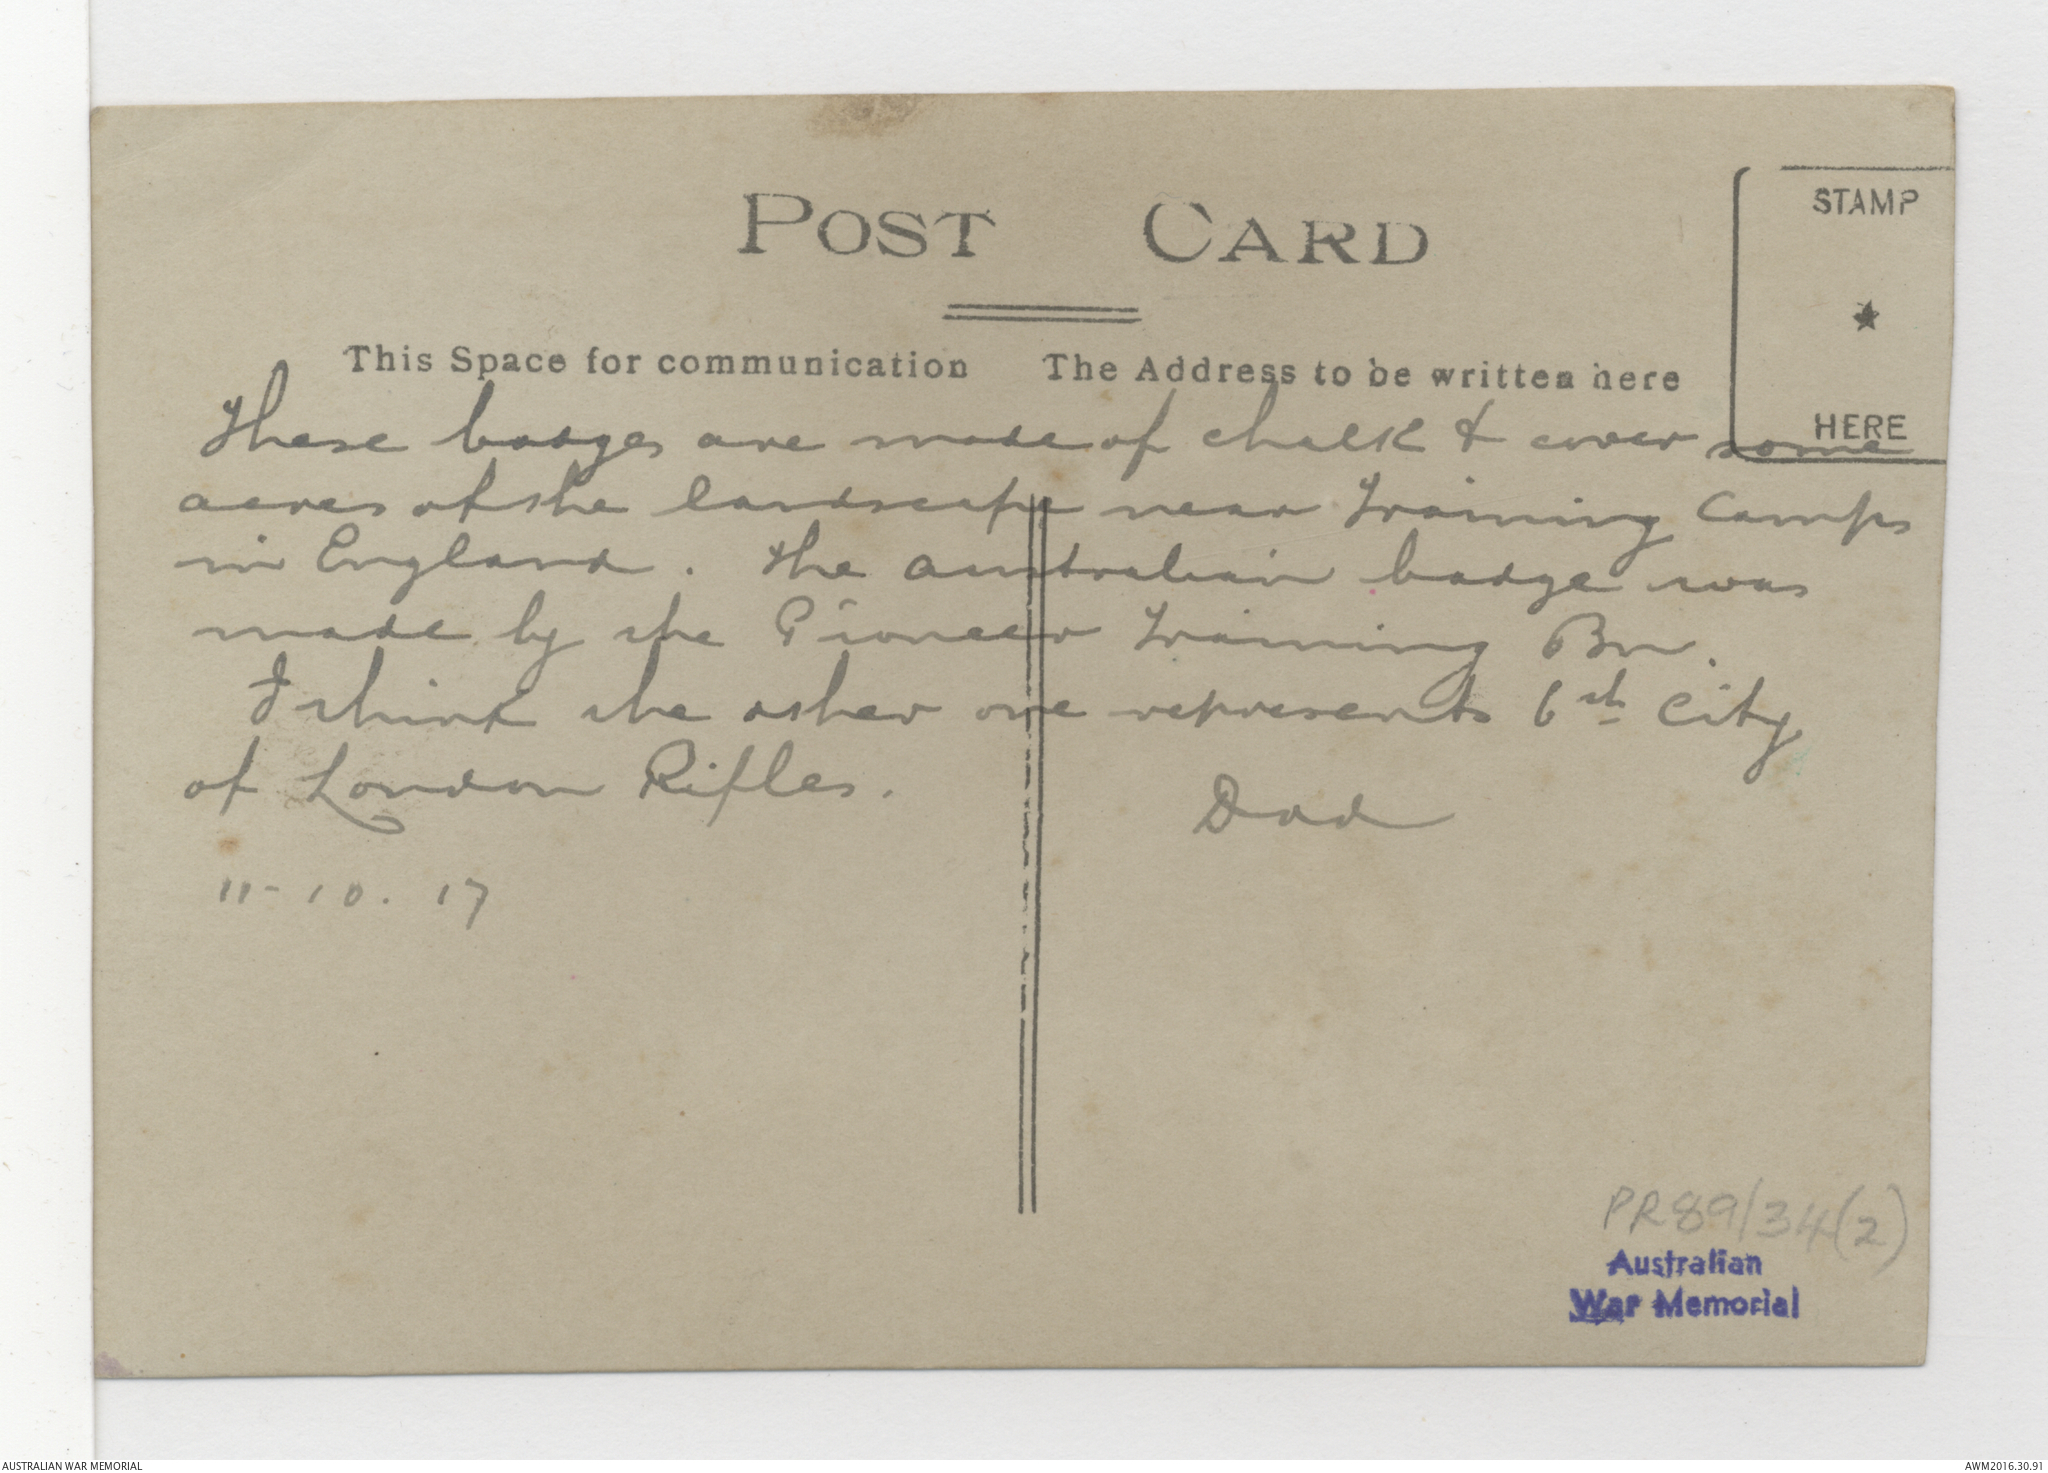 POST CARD
STAMP
HERE
This Space for communication
The Address to be written here
These badges are made of chalk & cover some
acres of the landscape near Training Camps
in England. The Australian badge was
made by the Pioneer Training Bn.
I think the other one represents 6th City
of London Rifles.
Dad
11-10.17
PR89/34(2)
Australian
War Memorial
AUSTRALIAN WAR MEMORIAL
AWM2016.30.91